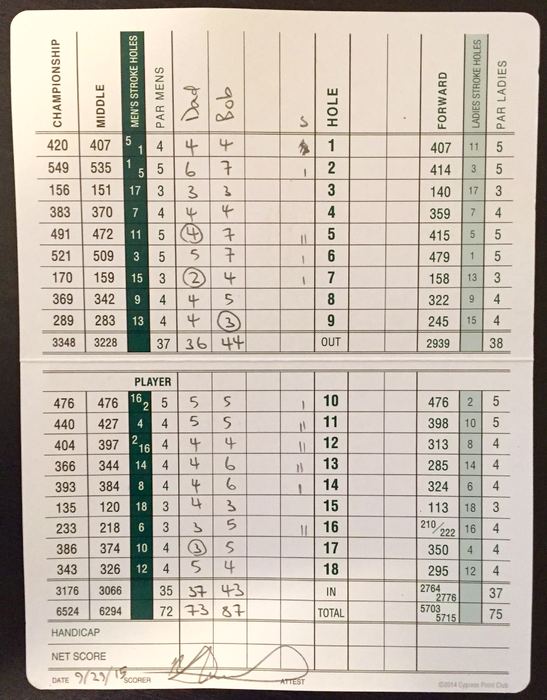 CHAMPIONSHIP MIDDLE MEN'S STROKE HOLES PAR MENS Dad Bob S HOLE FORWARD LADIES STROKE HOLES PAR LADIES
420 407 5 1 4 4 4 1 407 11 5
549 535 1 5 5 6 7 ı 2 414 3 5
156 151 17 3 3 3 3 140 17 3
383 370 7 4 4 4 4 359 7 4
491 472 11 5 4 7 ıı 5 415 5 5
521 509 3 5 5 7 ı 6 479 1 5
170 159 15 3 2 4 ı 7 158 13 3
369 342 9 4 4 5 8 322 9 4
289 283 13 4 4 3 9 245 15 4
3348 3228 37 36 44 OUT 2939 38
PLAYER
476 476 16 2 5 5 5 ı 10 476 2 5
440 427 4 4 5 5 ıı 11 398 10 5
404 397 2 16 4 4 4 ıı 12 313 8 4
366 344 14 4 4 6 ıı 13 285 14 4
393 384 8 4 4 6 ı 14 324 6 4
135 120 18 3 4 3 15 113 18 3
233 218 6 3 3 5 ıı 16 210/222 16 4
386 374 10 4 3 5 17 350 4 4
343 326 12 4 5 4 18 295 12 4
3176 3066 35 37 43 IN 2764 2776 37
6524 6294 72 73 87 TOTAL 5703 5715 75
HANDICAP
NET SCORE
DATE 9/29/15 SCORER ATTEST ©2014 Cypress Point Club